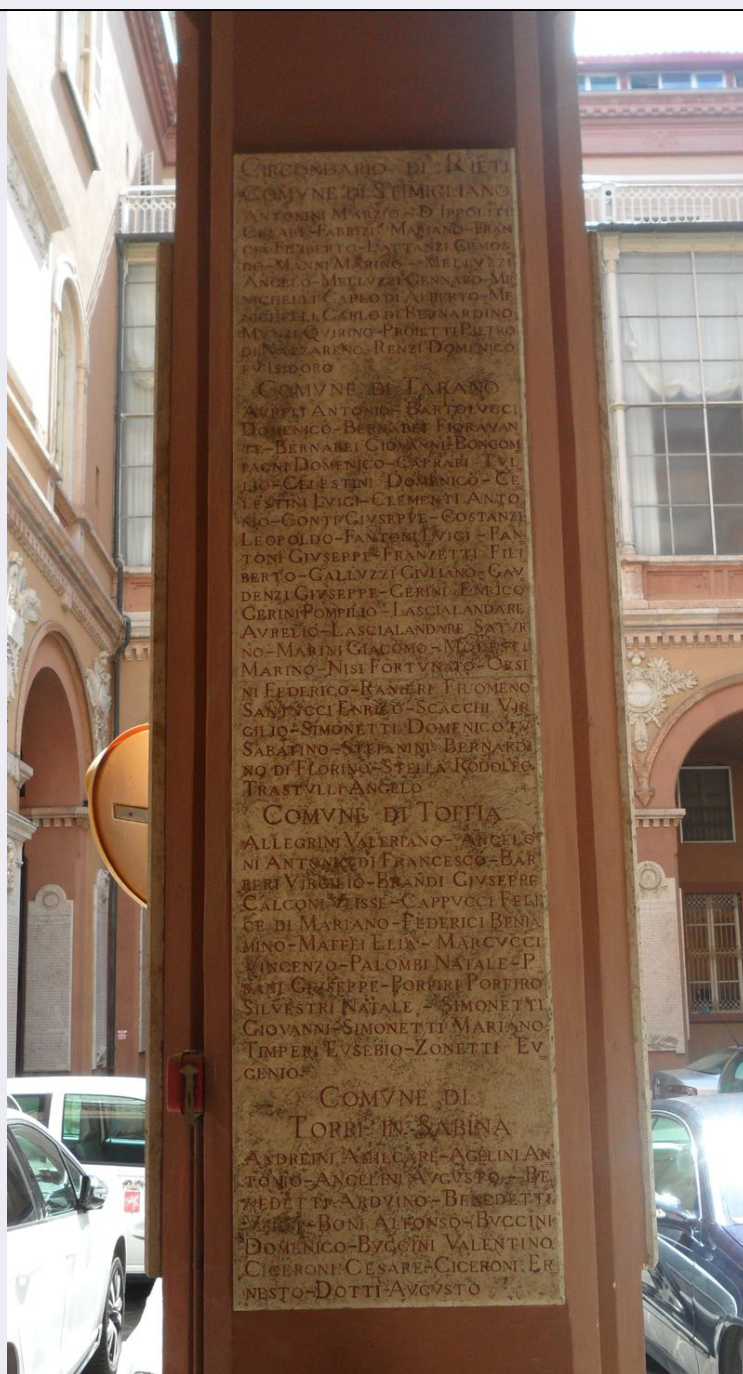 CIRCONDARIO DI RIETI
COMVNE DI STIMIGLIANO
ANTONINI MARZIO-D'IPPOLITI
CESARE-FABRIZI MARIANO-FRAN
CIA FILIBERTO-LATTANZI GISMON
DO-MANNI MARINO-MELLVZZI
ANGELO-MELLVZZI GENNARO-ME
NICHELLI CARLO DI ALBERTO-ME
NICHELLI CARLO DI BERNARDINO
MVNZI QVIRINO-PROIETTI PIETRO
DI NAZZARENO RENZI DOMENICO
FV ISIDORO
COMVNE DI TARANO
AVRELI ANTONIO-BARTOLVCCI
DOMENICO-BERNABEI FIORAVAN
TE-BERNABEI GIOVANNI-BONCOM
PAGNI DOMENICO-CAPRARI TVL
LIO-CELESTINI DOMENICO-CE
LESTINI LVIGI-CLEMENTI ANTO
NIO-CONTI GIVSEPPE-COSTANZI
LEOPOLDO-FANTONI LVIGI-FAN
TONI GIVSEPPE-FRANZETTI FILI
BERTO-GALLVZZI GIVLIANO-GAV
DENZI GIVSEPPE-GERINI ENRICO
GERINI POMPILIO-LASCIALANDARE
AVRELIO-LASCIALANDARE SATVR
NO-MARINI GIACOMO-MODESTI
MARINO-NISI FORTVNATO-ORSI
NI FEDERICO-RANIERI FILOMENO
SANTVCCI ENRICO-SCACCHI VIR
GILIO-SIMONETTI DOMENICO FV
SABATINO-STEFANINI BERNARDI
NO DI FLORINO-STELLA RODOLFO
TRASTVLLI ANGELO
COMVNE DI TOFFIA
ALLEGRINI VALERIANO-ANGELO
NI ANTONIO DI FRANCESCO-BAR
BERI VIRGILIO-BRANDI GIVSEPPE
CALCONI VLISSE-CAPPVCCI FELI
CE DI MARIANO-FEDERICI BENIA
MINO-MATTEI ELIA-MARCVCCI
VINCENZO-PALOMBI NATALE-P
SANI GIVSEPPE-PORFIRI PORFIRO
SILVESTRI NATALE-SIMONETTI
GIOVANNI-SIMONETTI MARIANO
TIMPERI EVSEBIO-ZONETTI EV
GENIO.
COMVNE DI
TORRI IN SABINA
ANDREINI AMILCARE-AGELINI AN
TONIO-ANGELINI AVGVSTO-BE
NEDETTI ARDVINO-BENEDETTI
BONI ALFONSO-BVCCINI
DOMENICO-BVCCINI VALENTINO
CICERONI CESARE-CICERONI ER
NESTO-DOTTI AVGVSTO